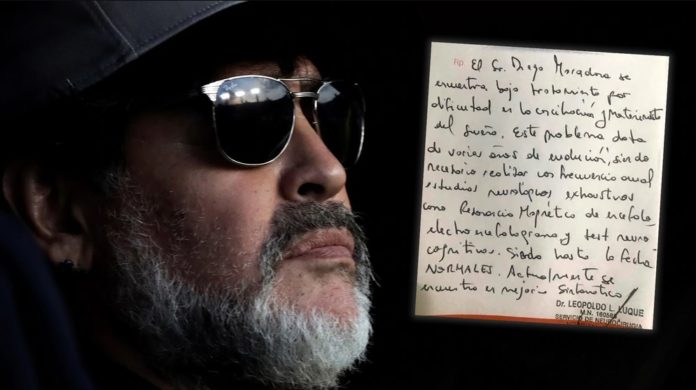 Ray-Ban
Rp. El Sr. Diego Maradona se
encuentra bajo tratamiento por
dificultad en la conciliación y Mantenimiento
del sueño. Este problema data
de varios años de evolución, siendo
necesario realizar con frecuencia anual
estudios neurológicos exhaustivos
como Resonancia Magnética de encéfalo,
electroencefalograma y test neuro
cognitivos. Siendo hasta la fecha
NORMALES. Actualmente se
encuentra en mejoría sintomática
Dr. LEOPOLDO L. LUQUE
M.N.
SERVICIO DE NEUROCIRUGIA